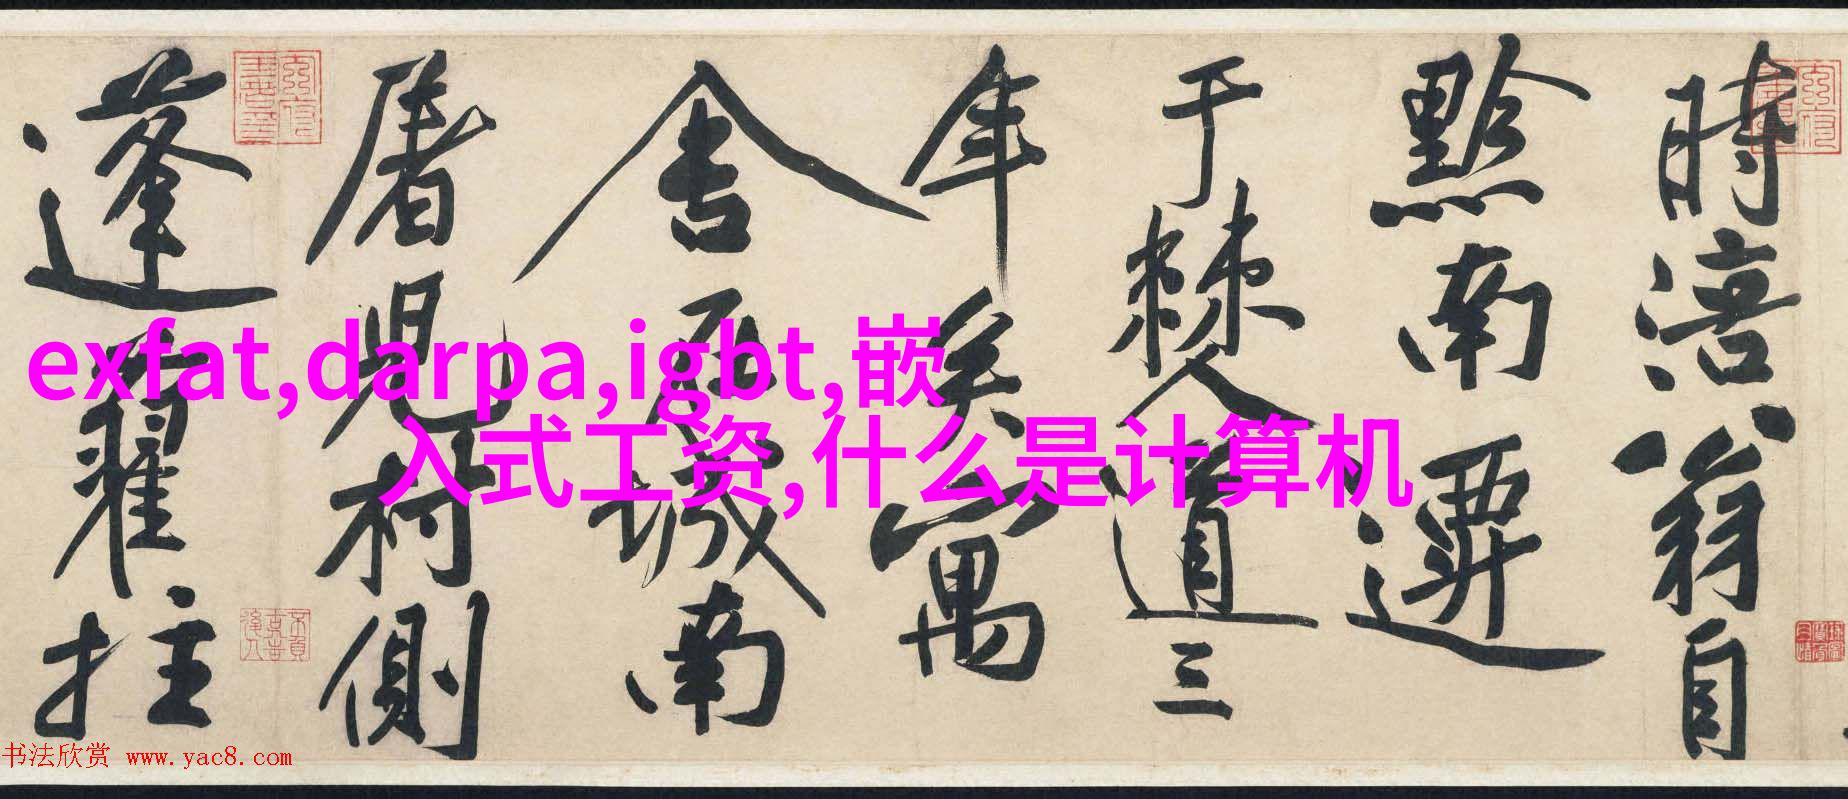 時涪翁自
黔南遷
于棘道三
年矣寓
舍居城南
屠兒村側
蓬藋拄
exfat,darpa,igbt,嵌
入式工资,什么是计算机
书法欣赏 www.yac8.com